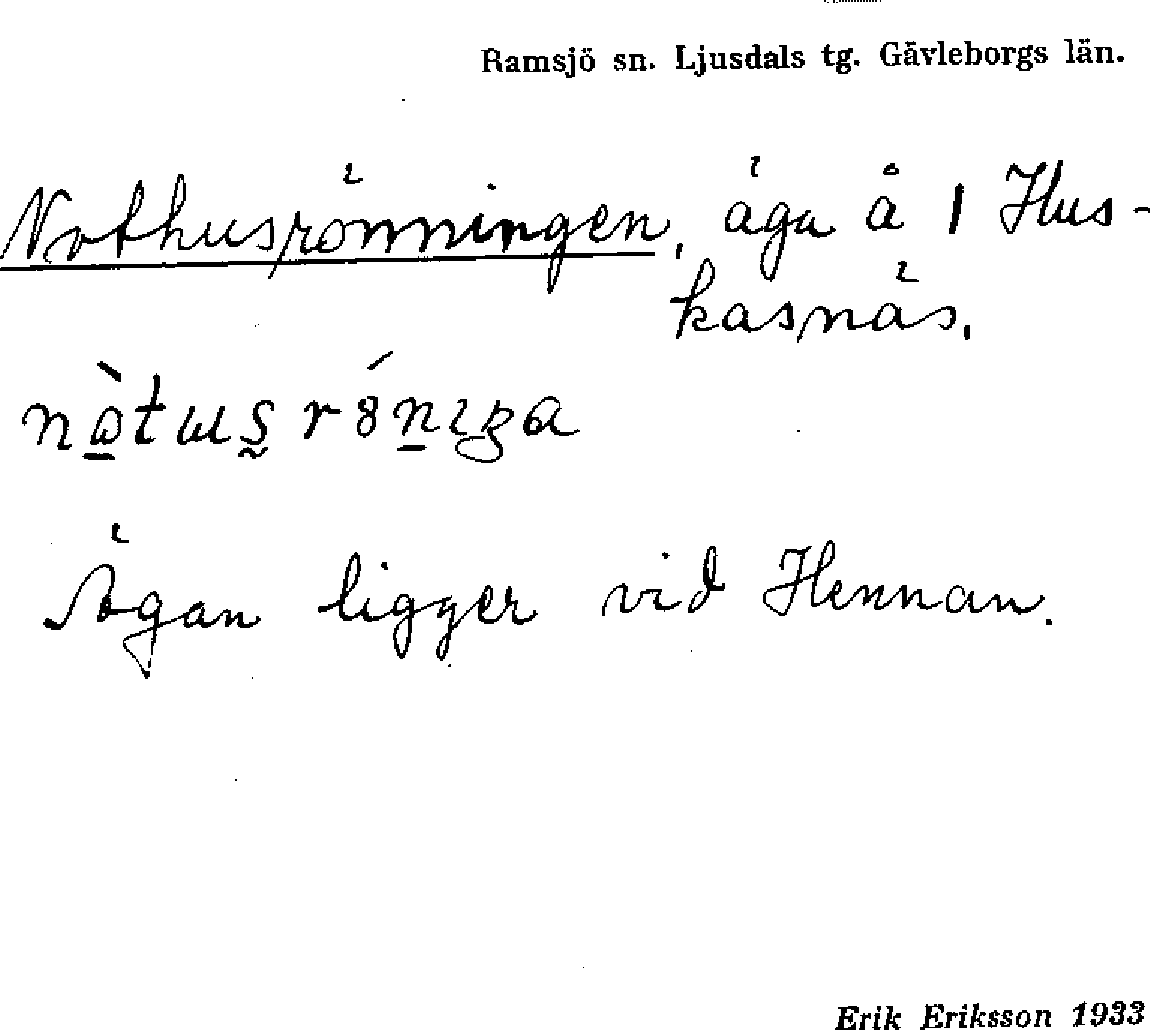 Ramsjö sn. Ljusdals tg. Gävleborgs län.
Nothusrönningen, äga å 1 Hus-
kasnäs.
Ägan ligger vid Hennan.
Erik Eriksson 1933